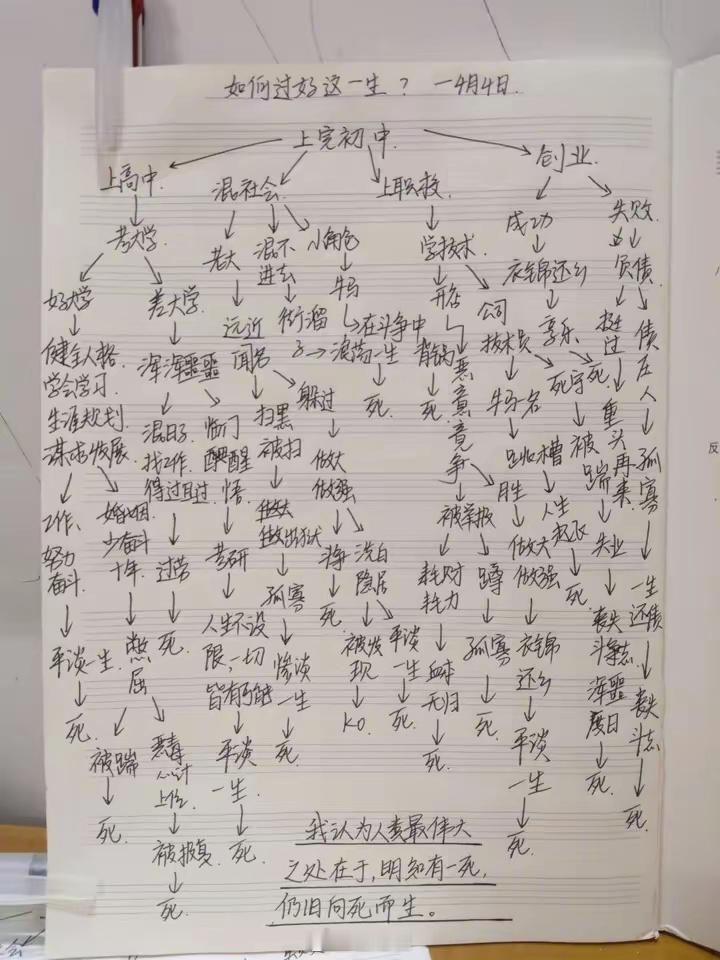 如何过好这一生？—4月4日.
上完初中.
上高中.
混社会
上职教.
创业.
考大学.
好大学
健全人格
学会学习
生涯规划
谋求发展.
工作、
努力
奋斗.
平淡一生.
死.
婚姻
少奋斗
十年.
憋
屈
被踹
死.
恶毒
心计
上位
被报复.
死.
差大学.
浑浑噩噩
混日子
找工作.
得过且过
过劳
死.
临门
醒
悟.
考研
人生不设
限,一切
皆有可能
平淡
一生.
死.
老大
远近
闻名
扫黑
被扫
做出狱
孤寡
惨淡
一生
死.
躲过
做大
做强
斗争
死.
洗白
隐居
被发
现
KO.
平淡
一生
死.
混不
进去
街溜
子→浪荡一生
死.
小角色
牛马
在斗争中
学技术.
开店
背锅
死.
恶
意
竞
争
被举报
耗财
耗力
血本
无归
死.
蹲
孤寡
死.
胜
做大
做强
衣锦
还乡
平淡
一生
死.
公司
技术员
牛马一名
跳槽
人生
起飞
死.
死守
被
踹
失业
丧失
斗志
浑噩
度日
死.
成功
衣锦还乡
享乐
死
失败.
负债
挺
过
重
头
再
来.
债
压
人
孤
寡
一生
还债
丧失
斗志
死.
我认为人类最伟大
之处在于,明知有一死,
仍旧向死而生。